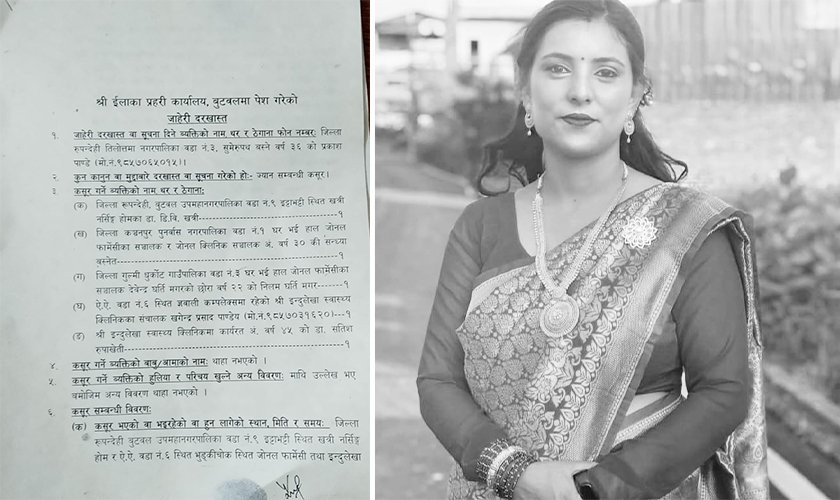 श्री ईलाका प्रहरी कार्यालय, बुटवलमा पेश गरेको
जाहेरी दरखास्त
१. जाहेरी दरखास्त वा सूचना दिने ब्यक्तिको नाम थर र ठेगाना फोन नम्बर: जिल्ला
रूपन्देही तिलोत्तमा नगरपालिका वडा नं.३, सुमेरुपथ बस्ने वर्ष ३६ को प्रकाश
पाण्डे (मो.नं.९८५७०६५०१५)।
२. कुन कानुन वा मुद्दाबारे दरखास्त वा सूचना गरेको हो:- ज्यान सम्वन्धी कसूर।
३. कसूर गर्ने ब्यक्तिको नाम थर र ठेगाना:
(क) जिल्ला रूपन्देही, बुटवल उपमहानगरपालिका वडा नं.९ इट्टाभट्टी स्थित खत्री
नर्सिङ्ग होमका डा. डि.वि. खत्री-----------------------------------१
(ख) जिल्ला कञ्चनपुर पुनर्वास नगरपालिका वडा नं.१ घर भई हाल जोनल
फार्मेसीका सञ्चालक र जोनल क्लिनिक सञ्चालक अं. वर्ष ३० की सन्ध्या
बस्नेत-----------------------------------१
(ग) जिल्ला गुल्मी धुर्कोट गाउँपालिका वडा नं.३ घर भई हाल जोनल फार्मेसीका
सञ्चालक देवेन्द्र घर्ति मगरको छोरा वर्ष २२ को निलम घर्ति मगर------१
(घ) ऐ.ऐ. वडा नं.६ स्थित ज्ञवाली कम्प्लेक्समा रहेको श्री इन्दुलेखा स्वास्थ्य
क्लिनिकका संचालक खगेन्द्र प्रसाद पाण्डेय (मो.नं.९८५७०३१६२०)---१
(ङ) श्री इन्दुलेखा स्वास्थ्य क्लिनिकमा कार्यरत अं. वर्ष ४५ को डा. सतिश
रुपाखेती-----------------------------------१
४. कसूर गर्ने ब्यक्तिको बाबु/आमाको नाम: थाहा नभएको ।
५. कसूर गर्ने ब्यक्तिको हुलिया र परिचय खुल्ने अन्य विवरण: माथि उल्लेख भए
बमोजिम अन्य विवरण थाहा नभएको ।
६. कसूर सम्बन्धी विवरण:
(क) कसूर भएको वा भइरहेको वा हुन लागेको स्थान, मिति र समय: जिल्ला
रूपन्देही बुटवल उपमहानगरपालिका वडा नं.९ इट्टाभट्टी स्थित खत्री नर्सिङ्ग
होम र ऐ.ऐ. वडा नं.६ स्थित भुटुकीचोक स्थित जोनल फार्मेसी तथा इन्दुलेखा